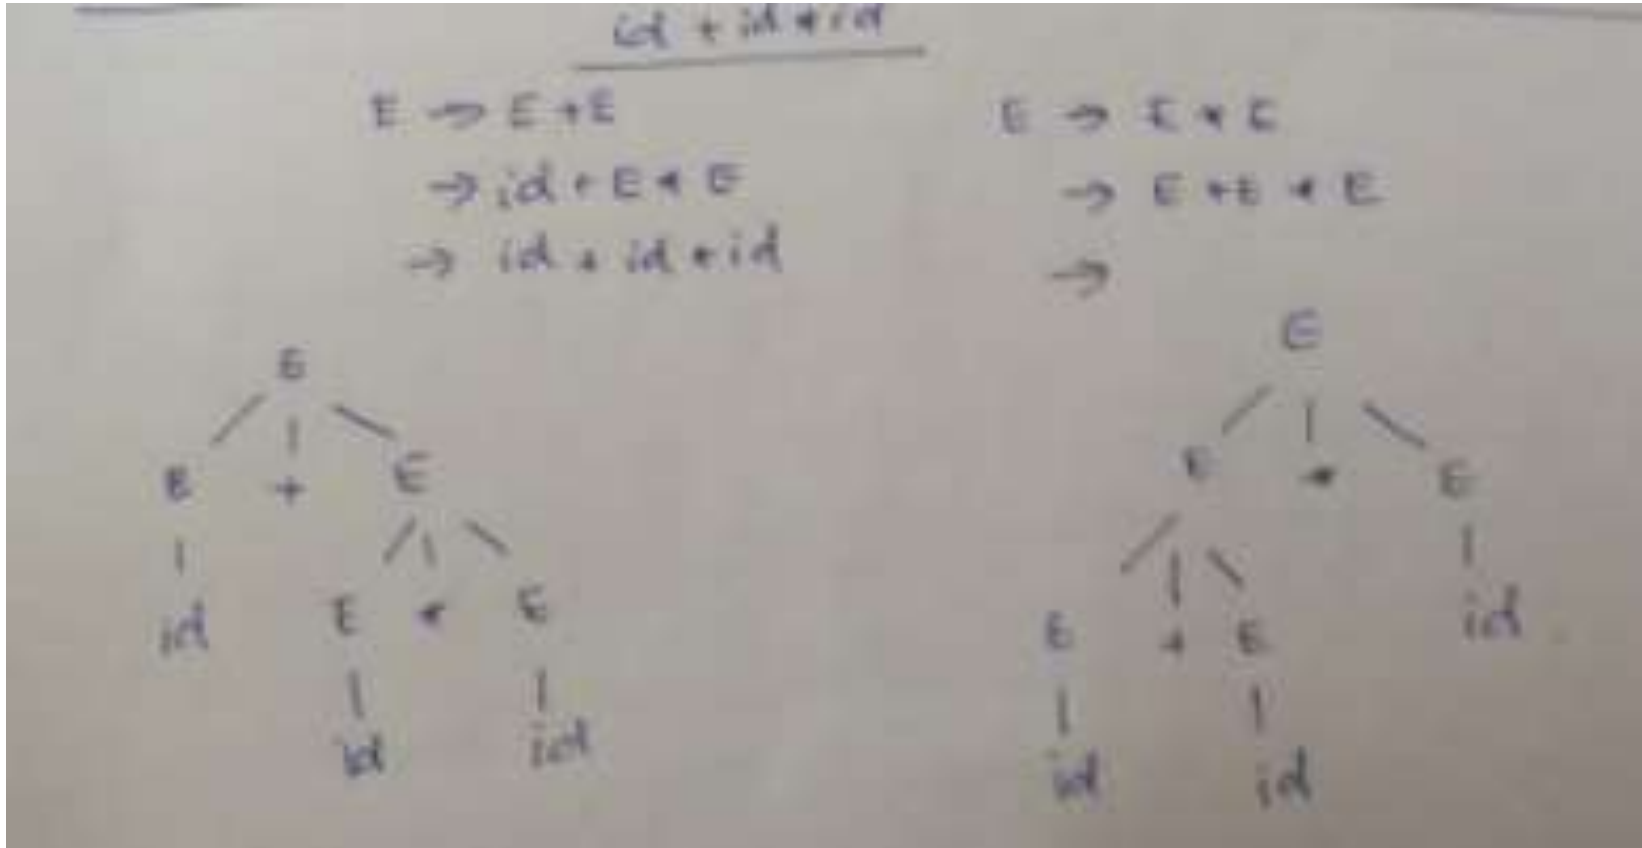 id + id * id
E → E + E
→ id + E * E
→ id + id * id
E → E * E
→ E + E * E
→
E
E + E
id E * E
id id
E
E * E
E + E id
id id